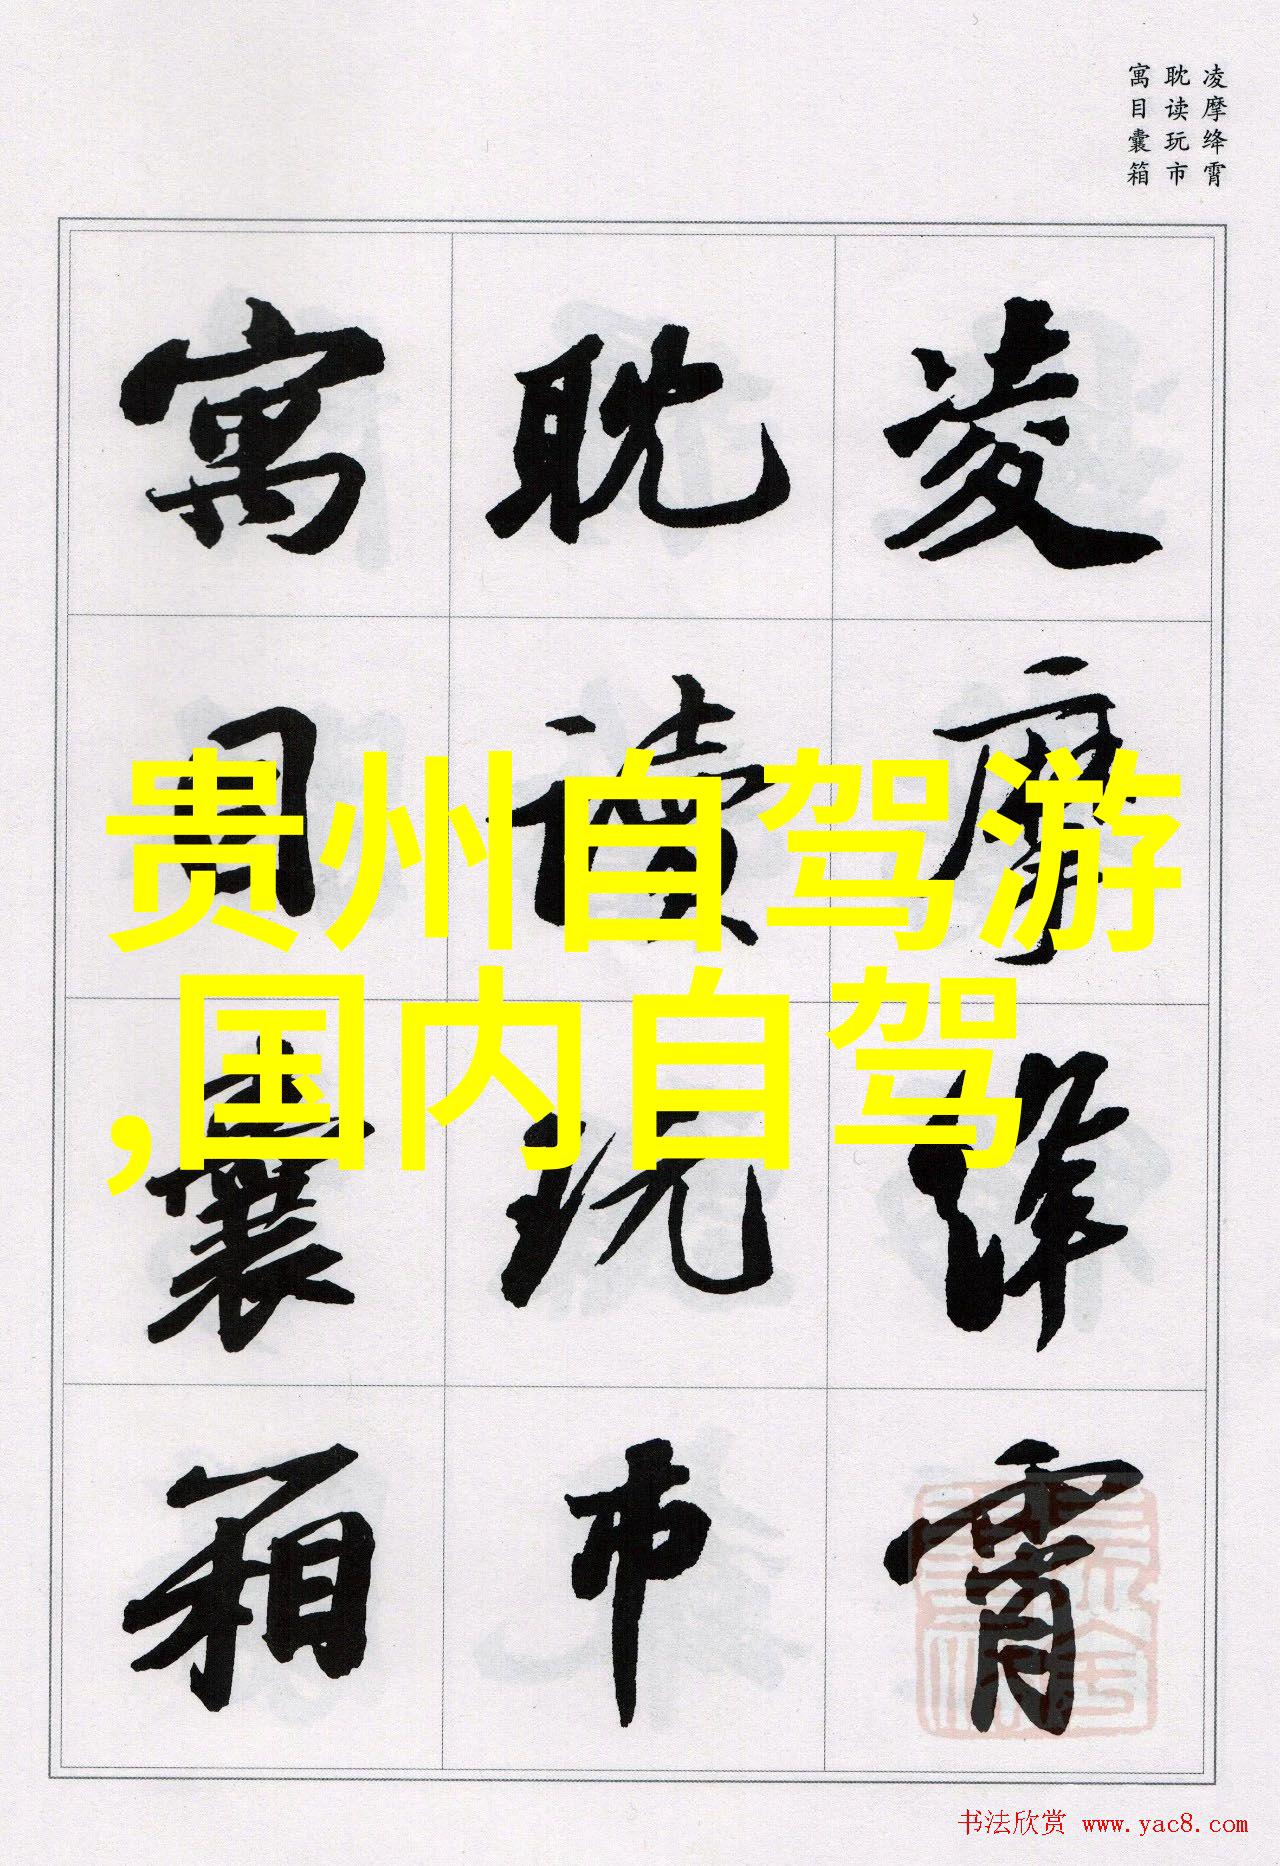 凌摩绛霄
耽读玩市
寓目囊箱
凌摩绛霄
耽读玩市
寓目囊箱
贵州自驾游
,国内自驾
书法欣赏 www.yac8.com